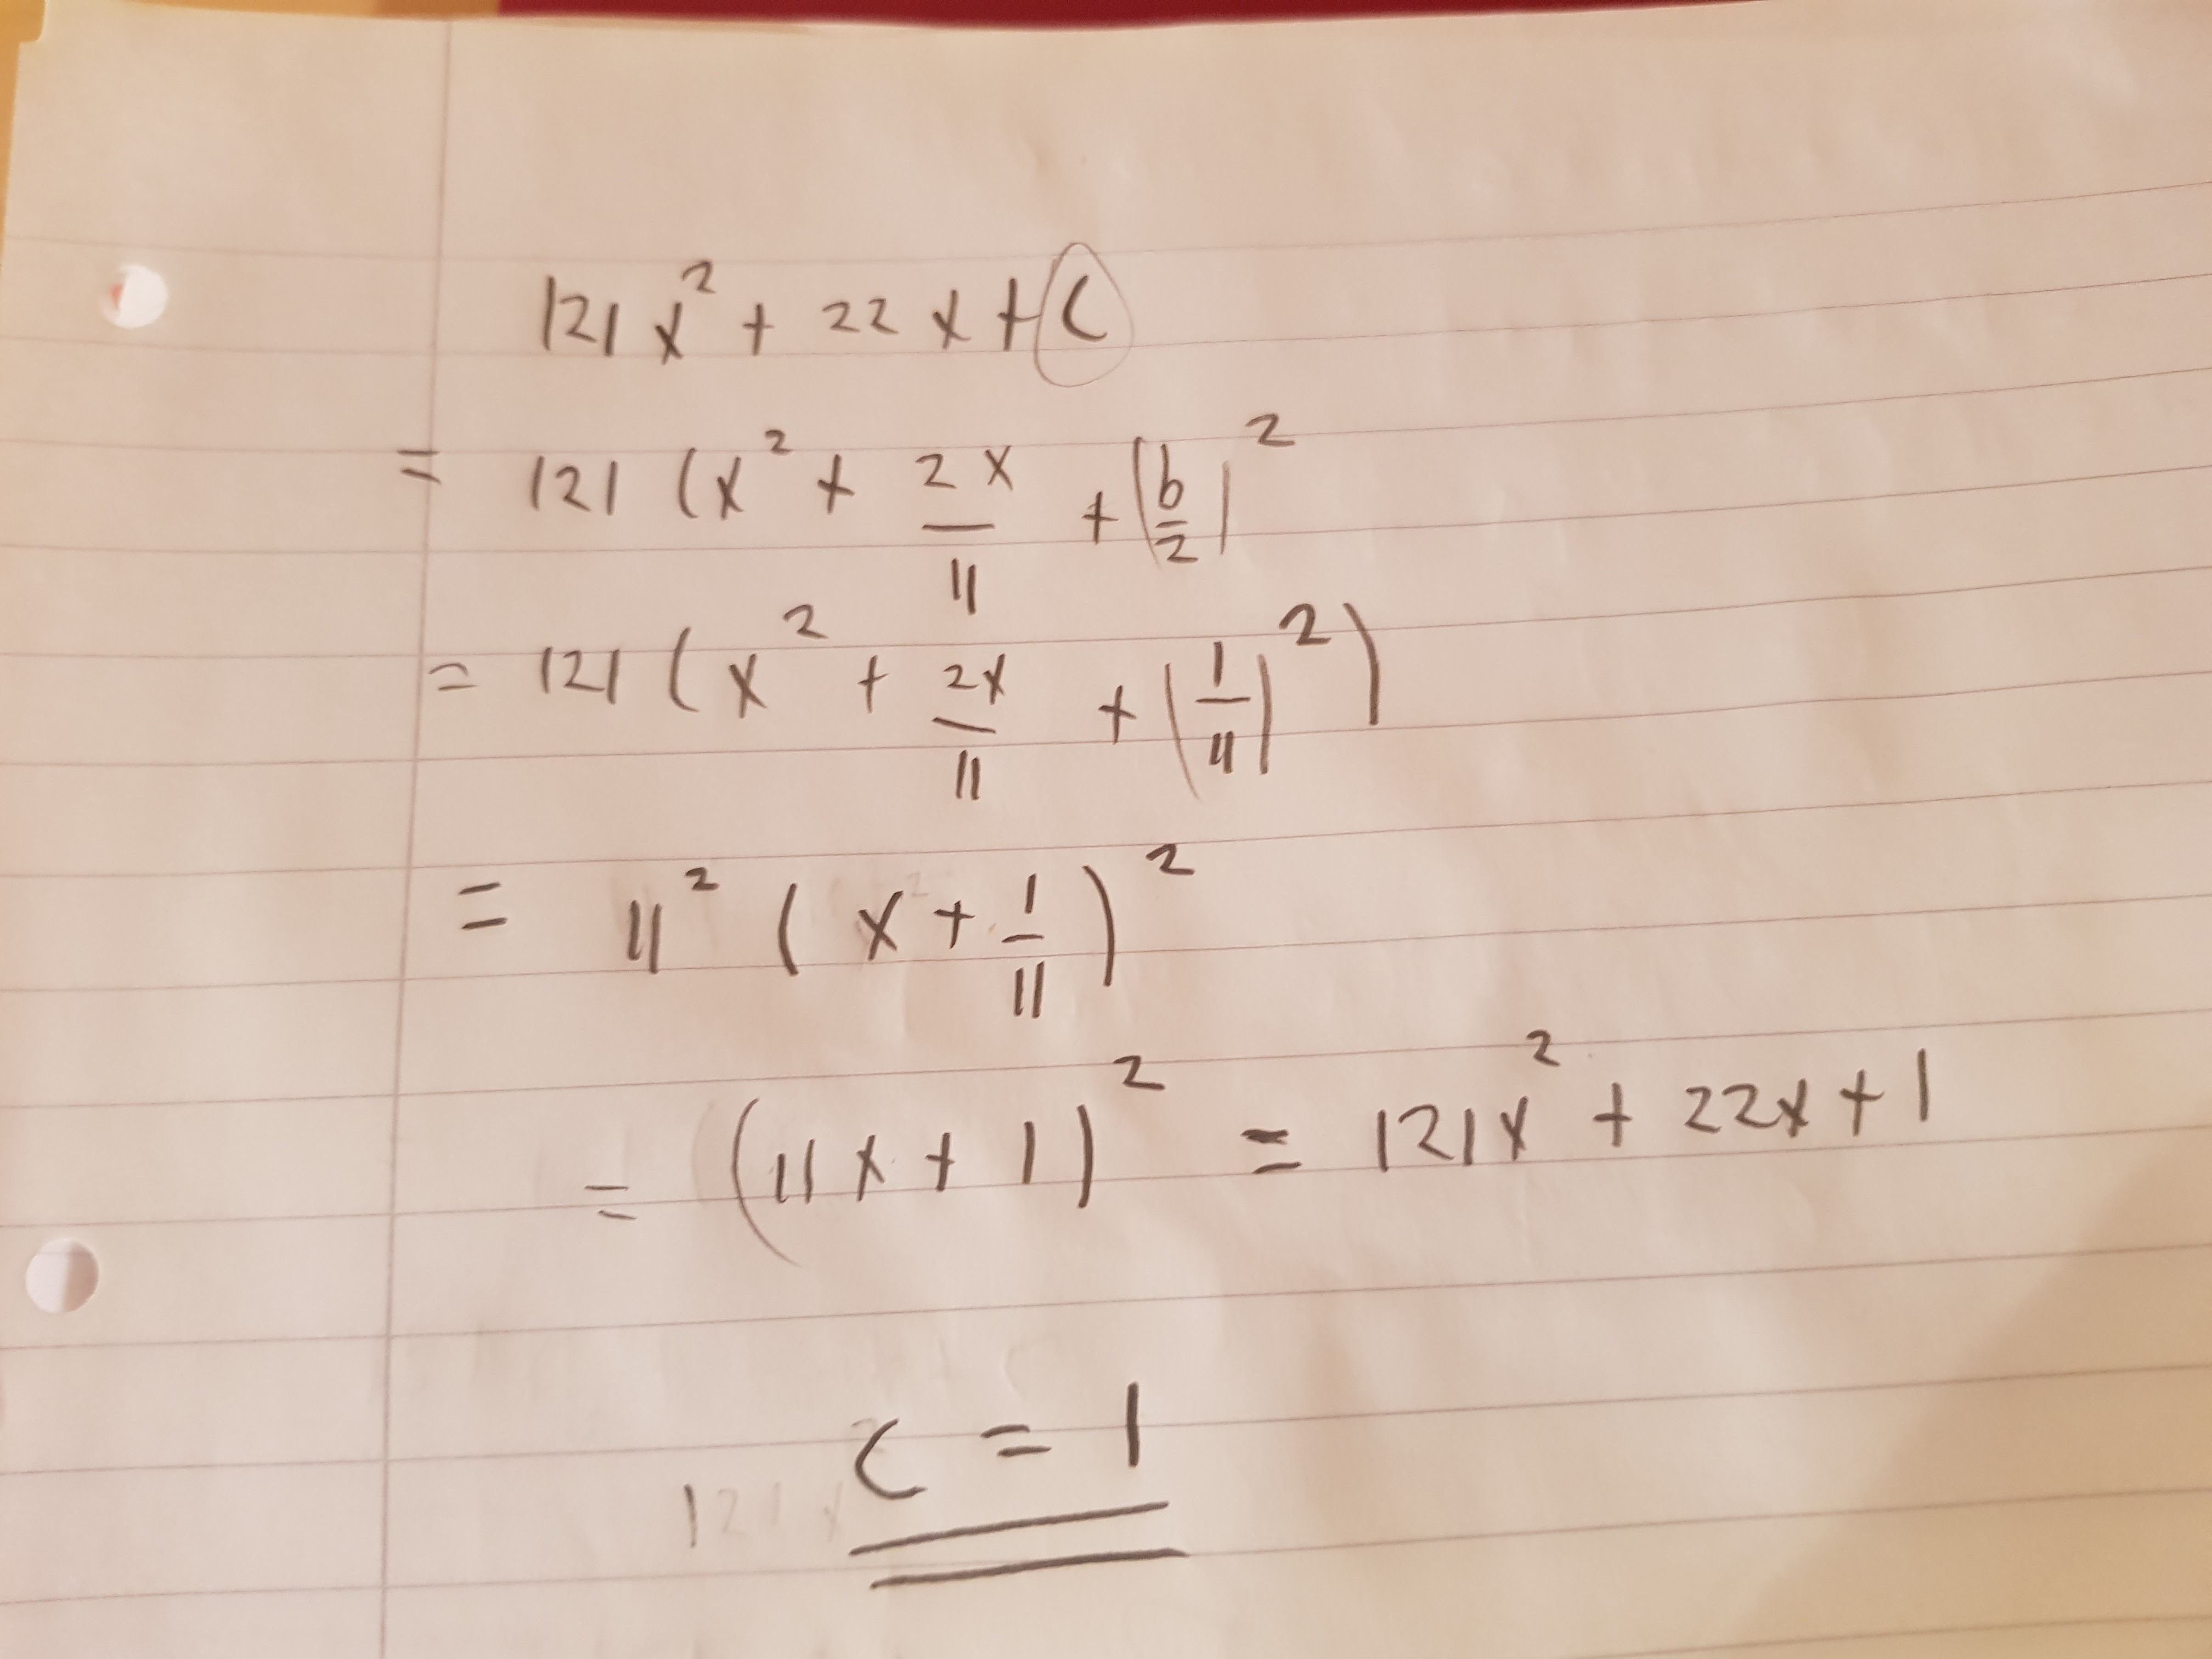 121x² + 22x + c
= 121 (x² + 2x/11 + (b/2)²
= 121 (x² + 2x/11 + (1/11)²)
= 11² (x + 1/11)²
= (11x + 1)² = 121x² + 22x + 1
c = 1
121x